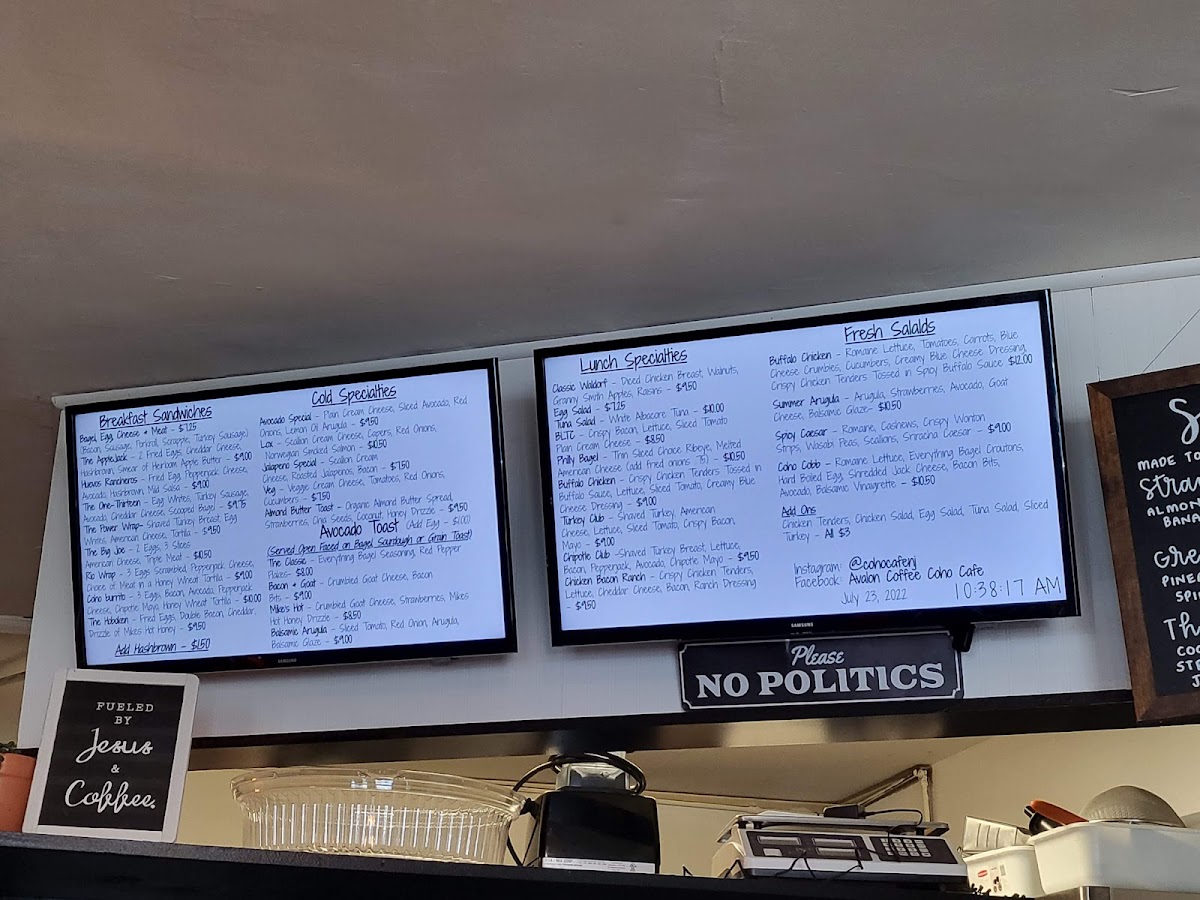 Breakfast Sandwiches
Bagel, Egg, Cheese + Meat - $7.25
(Bacon, Sausage, Porkroll, Scrapple, Turkey Sausage)
The AppleJack - 2 Fried Eggs, Cheddar Cheese,
Hashbrown, Smear of Heirloom Apple Butter - $9.00
Huevos Rancheros - Fried Egg, Pepperjack Cheese,
Avocado, Hashbrown, Mild Salsa - $9.00
The One-Thirteen - Egg Whites, Turkey Sausage,
Avocado, Cheddar Cheese, Scooped Bagel - $9.75
The Power Wrap- Shaved Turkey Breast, Egg
Whites, American Cheese, Tortilla - $9.50
The Big Joe - 2 Eggs, 3 Slices
American Cheese, Triple Meat - $10.50
Rio Wrap - 3 Eggs Scrambled, Pepperjack Cheese,
Choice of Meat in a Honey Wheat Tortilla - $9.00
Coho burrito - 3 Eggs, Bacon, Avocado, Pepperjack
Cheese, Chipotle Mayo, Honey Wheat Tortilla - $10.00
The Hoboken - Fried Eggs, Double Bacon, Cheddar,
Drizzle of Mikes Hot Honey - $9.50
Add Hashbrown - $1.50
Cold Specialties
Avocado Special - Plain Cream Cheese, Sliced Avocado, Red
Onions, Lemon Oil Arugula - $9.50
Lox - Scallion Cream Cheese, Capers, Red Onions,
Norwegian Smoked Salmon - $10.50
Jalapeno Special - Scallion Cream
Cheese, Roasted Jalapenos, Bacon - $7.50
Veg - Veggie Cream Cheese, Tomatoes, Red Onions,
Cucumbers - $7.50
Almond Butter Toast - Organic Almond Butter Spread,
Strawberries, Chia Seeds, Coconut, Honey Drizzle - $9.50
Avocado Toast (Add Egg - $1.00)
(Served Open Faced on Bagel, Sourdough or Grain Toast)
The Classic - Everything Bagel Seasoning, Red Pepper
Flakes- $8.00
Bacon + Goat - Crumbled Goat Cheese, Bacon
Bits - $9.00
Mike's Hot - Crumbled Goat Cheese, Strawberries, Mikes
Hot Honey Drizzle - $8.50
Balsamic Arugula - Sliced Tomato, Red Onion, Arugula,
Balsamic Glaze - $9.00
SAMSUNG
Lunch Specialties
Classic Waldorf - Diced Chicken Breast, Walnuts,
Granny Smith Apples, Raisins - $9.50
Egg Salad - $7.25
Tuna Salad - White Albacore Tuna - $10.00
BLTC - Crispy Bacon, Lettuce, Sliced Tomato
Plain Cream Cheese - $8.50
Philly Bagel - Thin Sliced Choice Ribeye, Melted
American Cheese (add fried onions .75) - $10.50
Buffalo Chicken - Crispy Chicken Tenders Tossed in
Buffalo Sauce, Lettuce, Sliced Tomato, Creamy Blue
Cheese Dressing - $9.00
Turkey Club - Shaved Turkey, American
Cheese, Lettuce, Sliced Tomato, Crispy Bacon,
Mayo - $9.00
Chipotle Club -Shaved Turkey Breast, Lettuce,
Bacon, Pepperjack, Avocado, Chipotle Mayo - $9.50
Chicken Bacon Ranch - Crispy Chicken Tenders,
Lettuce, Cheddar Cheese, Bacon, Ranch Dressing
- $9.50
Fresh Salalds
Buffalo Chicken - Romaine Lettuce, Tomatoes, Carrots, Blue
Cheese Crumbles, Cucumbers, Creamy Blue Cheese Dressing,
Crispy Chicken Tenders Tossed in Spicy Buffalo Sauce $12.00
Summer Arugula - Arugula, Strawberries, Avocado, Goat
Cheese, Balsamic Glaze- $10.50
Spicy Caesar - Romaine, Cashews, Crispy Wonton
Strips, Wasabi Peas, Scallions, Sriracha Caesar - $9.00
Coho Cobb - Romaine Lettuce, Everything Bagel Croutons,
Hard Boiled Egg, Shredded Jack Cheese, Bacon Bits,
Avocado, Balsamic Vinaigrette - $10.50
Add Ons
Chicken Tenders, Chicken Salad, Egg Salad, Tuna Salad, Sliced
Turkey - All $3
Instagram: @cohocafenj
Facebook: Avalon Coffee Coho Cafe
July 23, 2022 10:38:17 AM
SAMSUNG
Please
NO POLITICS
FUELED
BY
Jesus
&
Coffee.
MADE TO
ALMON
BANA
PINE
SPI
Th
COC
STR